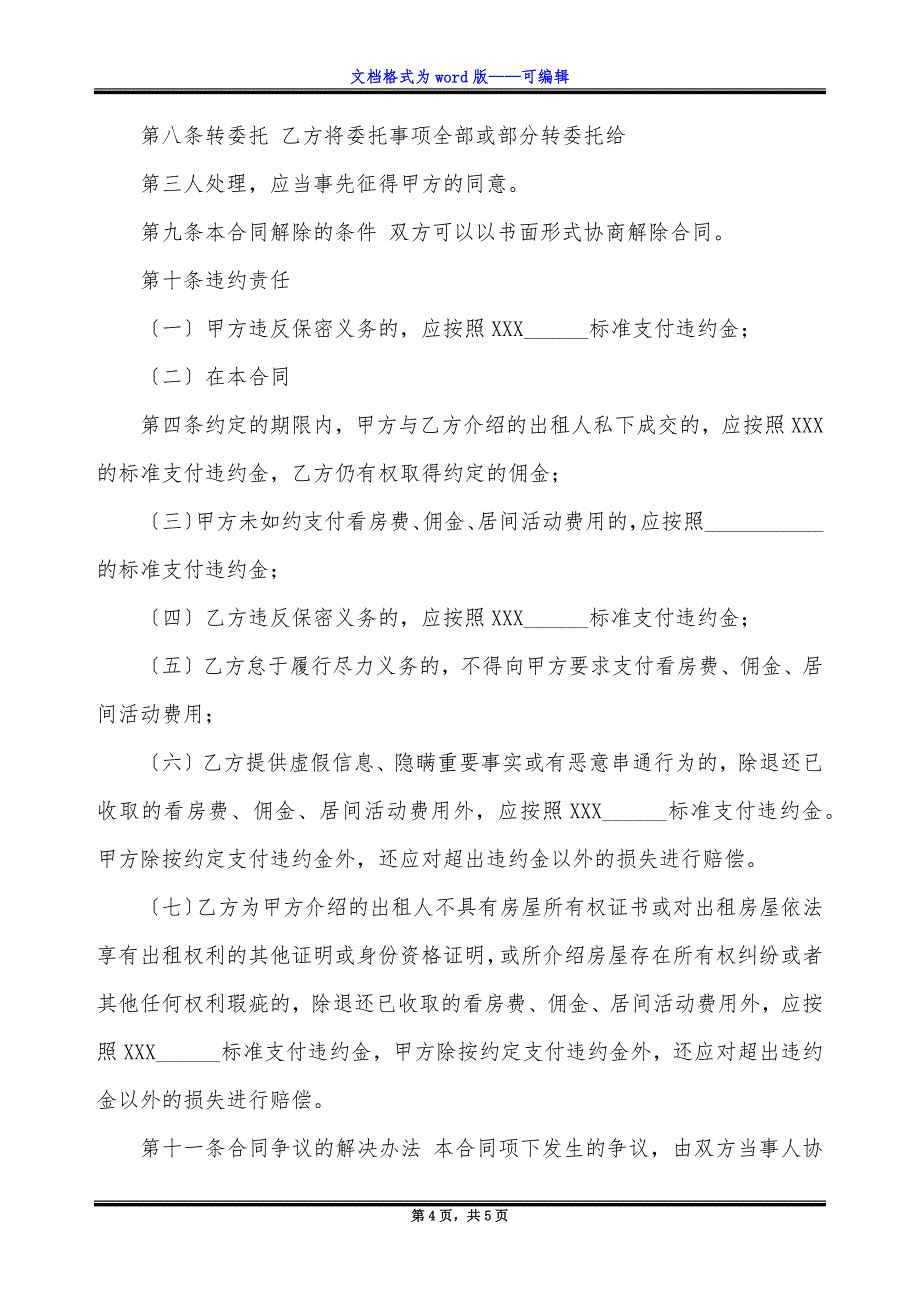 文档格式为 word 版——可编辑
第八条转委托 乙方将委托事项全部或部分转委托给
第三人处理，应当事先征得甲方的同意。
第九条本合同解除的条件 双方可以以书面形式协商解除合同。
第十条违约责任
〔一〕甲方违反保密义务的，应按照 XXX______标准支付违约金；
〔二〕在本合同
第四条约定的期限内，甲方与乙方介绍的出租人私下成交的，应按照 XXX
的标准支付违约金，乙方仍有权取得约定的佣金；
〔三〕甲方未如约支付看房费、佣金、居间活动费用的，应按照___________
的标准支付违约金；
〔四〕乙方违反保密义务的，应按照 XXX______标准支付违约金；
〔五〕乙方怠于履行尽力义务的，不得向甲方要求支付看房费、佣金、居
间活动费用；
〔六〕乙方提供虚假信息、隐瞒重要事实或有恶意串通行为的，除退还已
收取的看房费、佣金、居间活动费用外，应按照 XXX______标准支付违约金。
甲方除按约定支付违约金外，还应对超出违约金以外的损失进行赔偿。
〔七〕乙方为甲方介绍的出租人不具有房屋所有权证书或对出租房屋依法
享有出租权利的其他证明或身份资格证明，或所介绍房屋存在所有权纠纷或者
其他任何权利瑕疵的，除退还已收取的看房费、佣金、居间活动费用外，应按
照 XXX______标准支付违约金，甲方除按约定支付违约金外，还应对超出违约
金以外的损失进行赔偿。
第十一条合同争议的解决办法 本合同项下发生的争议，由双方当事人协
第 4 页，共 5 页